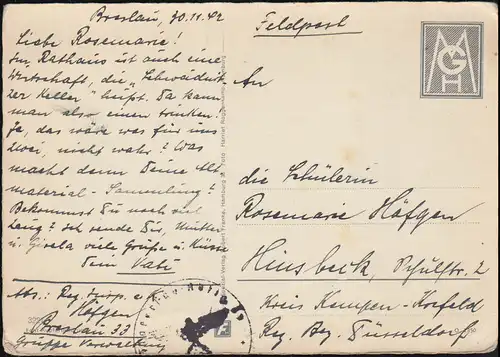 Breslau, 30.11.42
Liebe Rosemarie!
Im Rathaus ist auch eine
Wirtschaft, die „Schweidnit-
zer Keller" heißt. Da kann
man also einen trinken.
Ja, das wäre was für uns
zwei, nicht wahr? Was
macht denn Deine Alt-
material-Sammlung?
Bekommst Du noch viel
Zeug? Ich sende Dir, Mutter
u. Gisela viele Grüße u. Küsse
Dein Vati
Abs.: Reg. Insp.
Höfgen
Breslau 33
Gruppe Verwaltung
Feldpost
MGH
An
die Schülerin
Rosemarie Höfgen
Hinsbeck, Schulstr. 2
Kreis Kempen-Krefeld
Reg. Bez. Düsseldorf